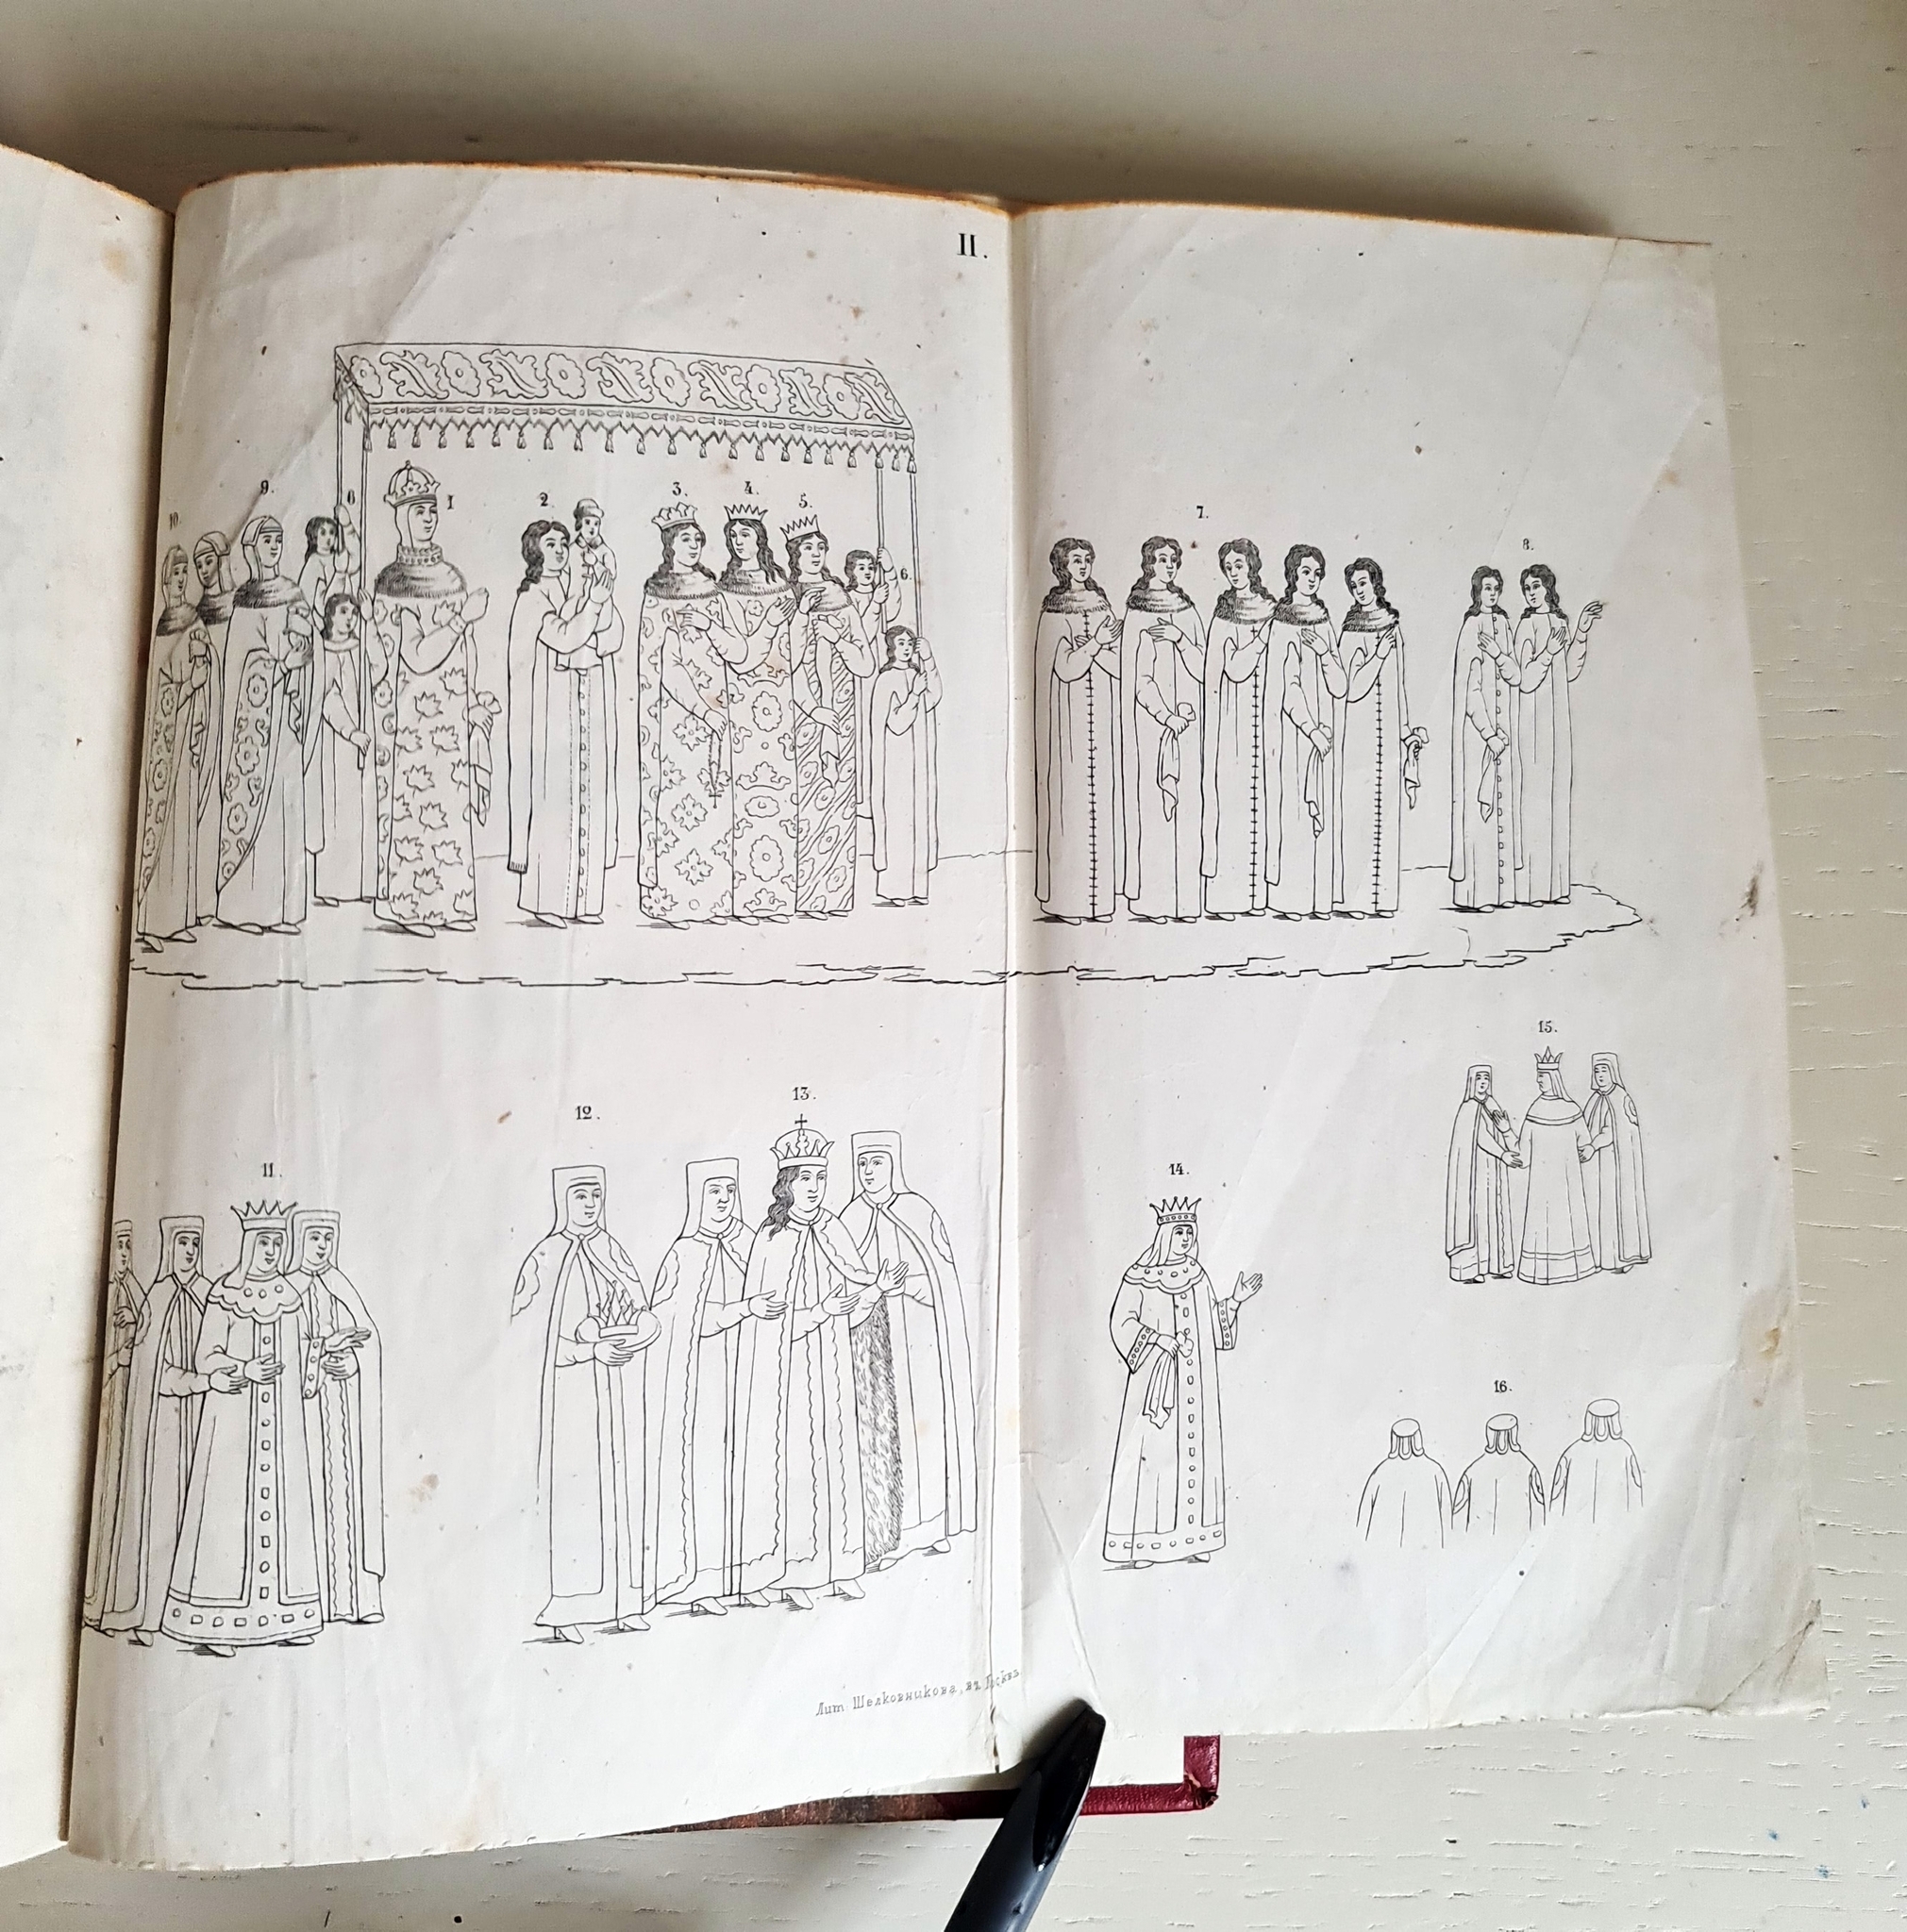 II.
10.
9.
6
1
2.
3.
4.
5.
6.
7.
8.
11.
12.
13.
14.
15.
16.
Лит. Шелковникова, въ